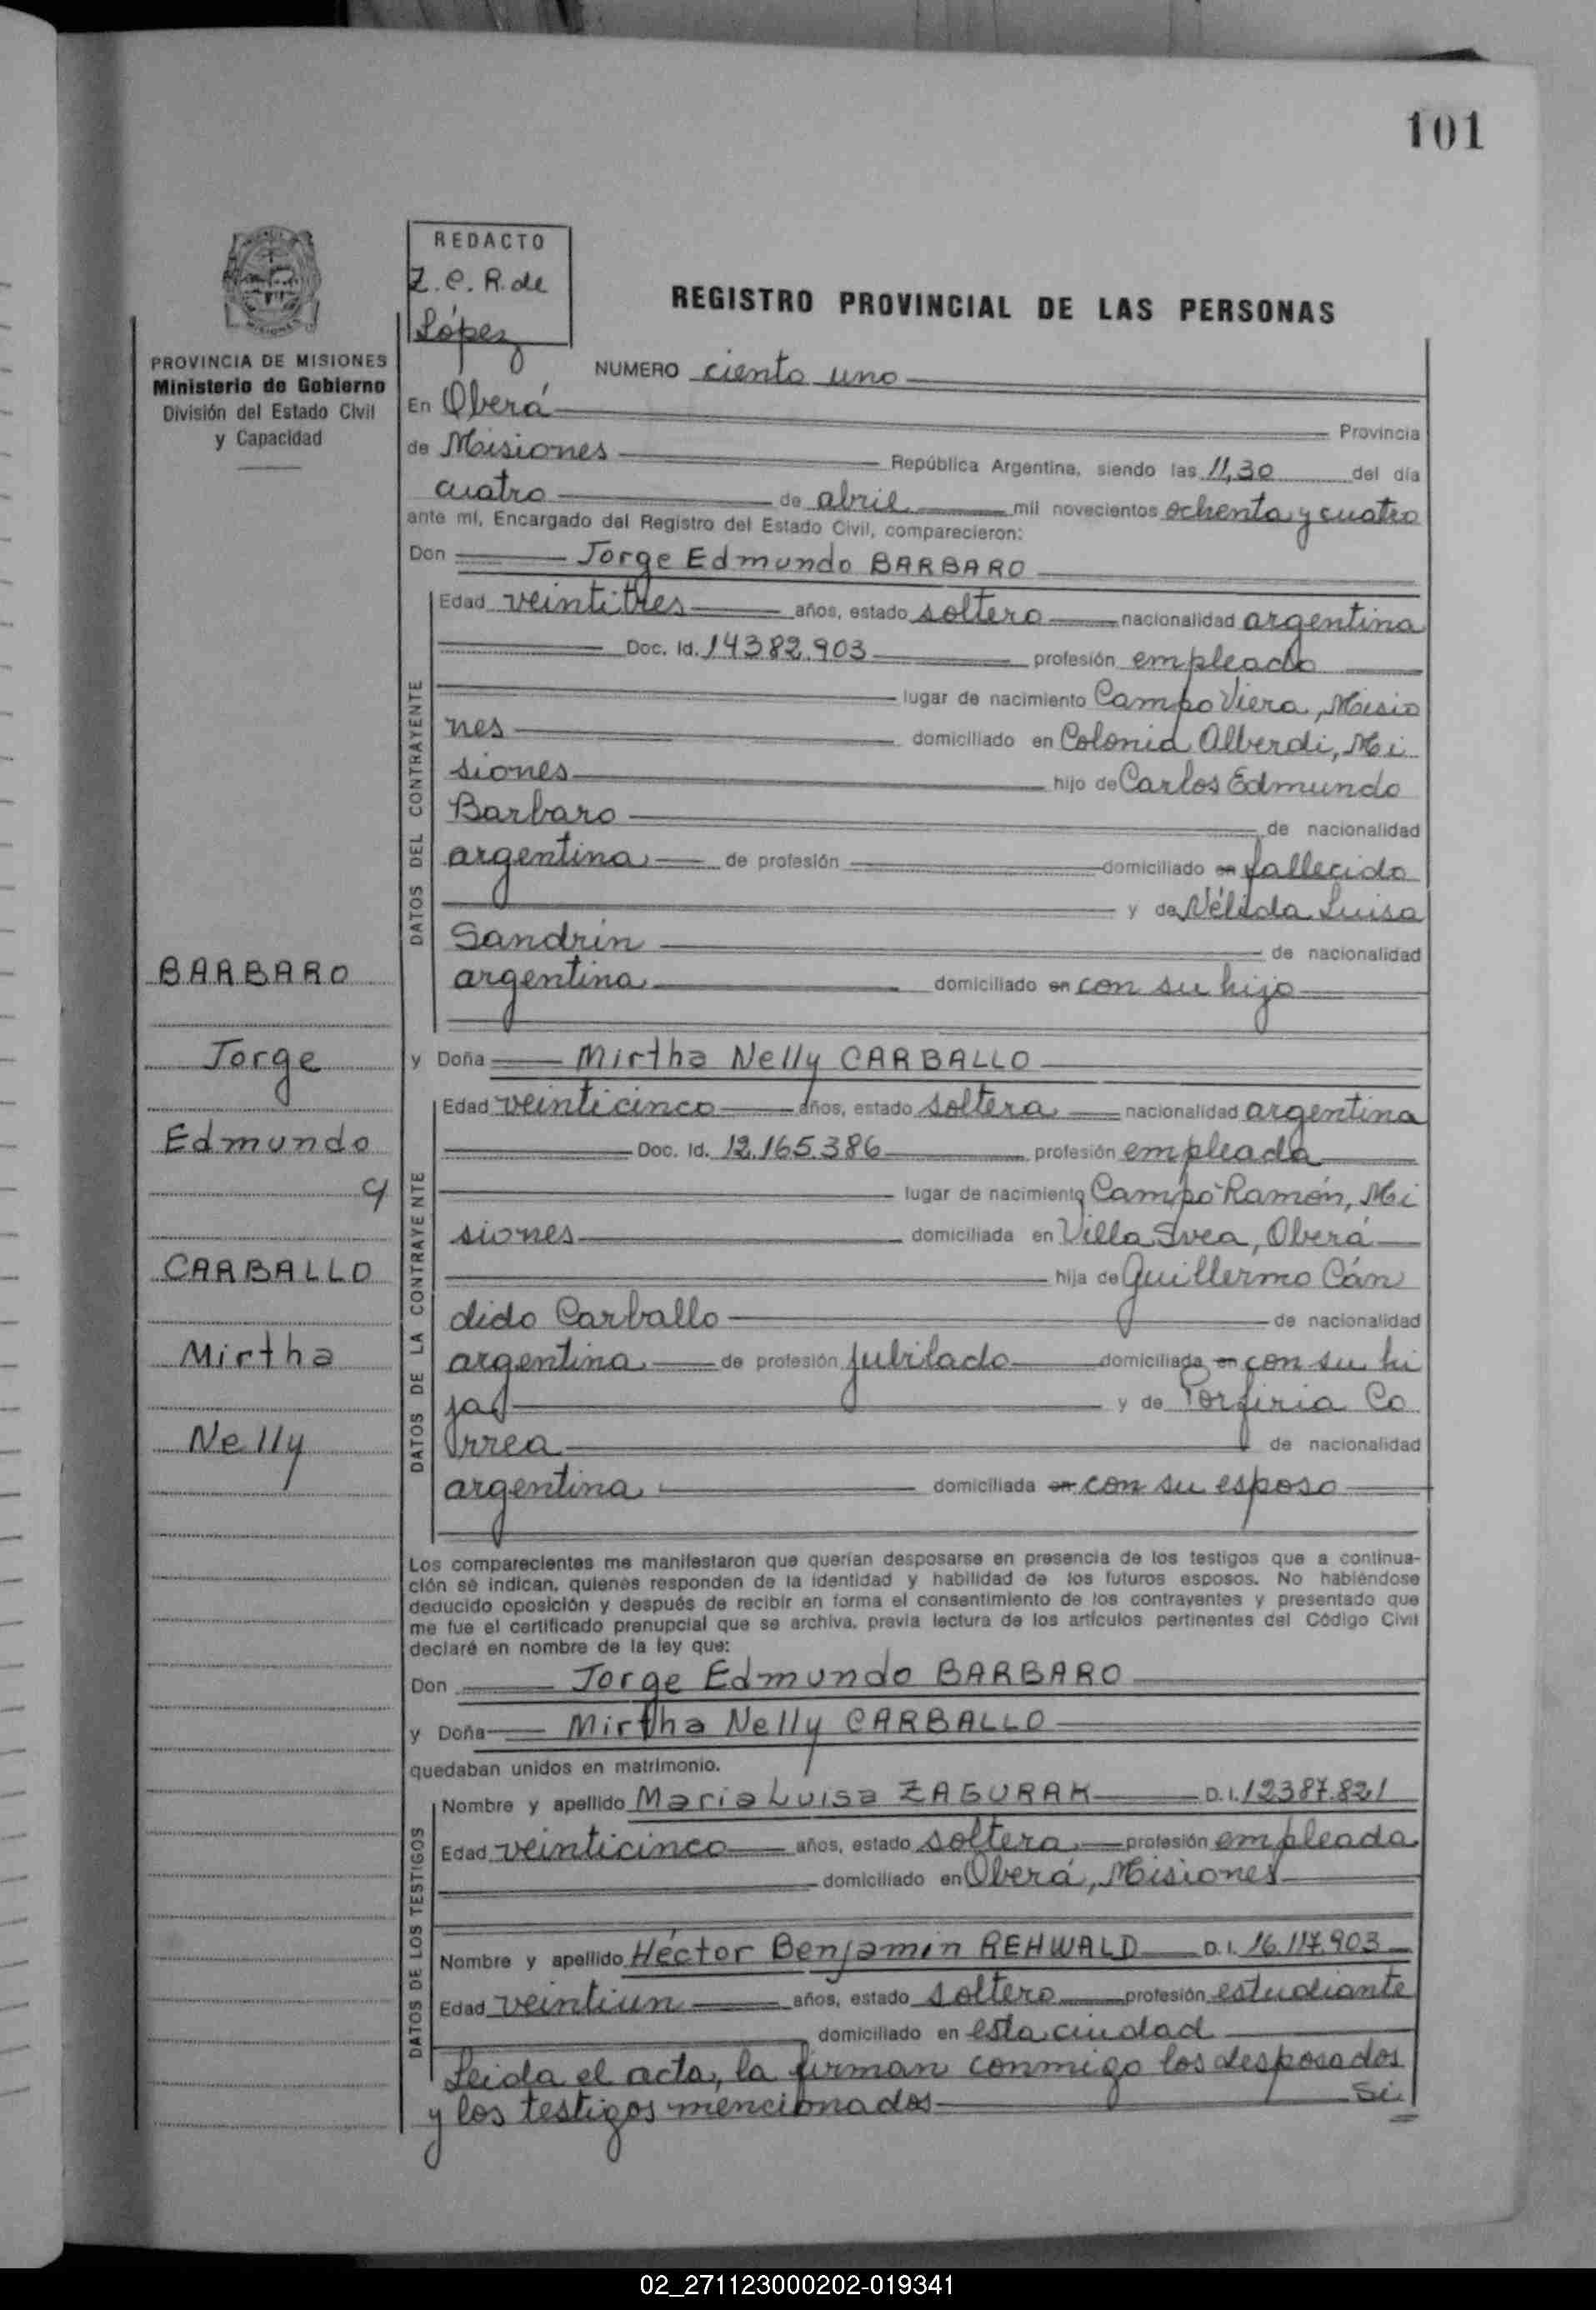 101
REDACTO
Z. C. R. de
López
REGISTRO PROVINCIAL DE LAS PERSONAS
PROVINCIA DE MISIONES
Ministerio de Gobierno
División del Estado Civil
y Capacidad
NUMERO ciento uno
En Oberá Provincia
de Misiones República Argentina, siendo las 11,30 del día
cuatro de abril mil novecientos ochenta y cuatro
ante mí, Encargado del Registro del Estado Civil, comparecieron:
Don Jorge Edmundo BARBARO
DATOS DEL CONTRAYENTE
Edad veintitres años, estado soltero nacionalidad argentina
Doc. Id. 14382.903 profesión empleado
lugar de nacimiento Campo Viera, Misio
nes domiciliado en Colonia Alberdi, Mi
siones hijo de Carlos Edmundo
Barbaro de nacionalidad
argentina de profesión domiciliado en fallecido
y de Nélida Luisa
Sandrin de nacionalidad
argentina domiciliado en con su hijo
BARBARO
Jorge
Edmundo
y
CARBALLO
Mirtha
Nelly
y Doña Mirtha Nelly CARBALLO
DATOS DE LA CONTRAYENTE
Edad veinticinco años, estado soltera nacionalidad argentina
Doc. Id. 12.165.386 profesión empleada
lugar de nacimiento Campo Ramón, Mi
siones domiciliada en Villa Svea, Oberá
hija de Guillermo Cán
dido Carballo de nacionalidad
argentina de profesión jubilado domiciliada en con su hi
ja y de Porfiria Co
rrea de nacionalidad
argentina domiciliada en con su esposo
Los comparecientes me manifestaron que querían desposarse en presencia de los testigos que a continua-
ción se indican, quienes responden de la identidad y habilidad de los futuros esposos. No habiéndose
deducido oposición y después de recibir en forma el consentimiento de los contrayentes y presentado que
me fue el certificado prenupcial que se archiva, previa lectura de los artículos pertinentes del Código Civil
declaré en nombre de la ley que:
Don Jorge Edmundo BARBARO
y Doña Mirtha Nelly CARBALLO
quedaban unidos en matrimonio.
DATOS DE LOS TESTIGOS
Nombre y apellido Maria Luisa ZAGURAK D.I. 12387.821
Edad veinticinco años, estado soltera profesión empleada
domiciliado en Oberá, Misiones
Nombre y apellido Héctor Benjamin REHWALD D.I. 16.117.903
Edad veintiun años, estado soltero profesión estudiante
domiciliado en esta ciudad
Leida el acta, la firman conmigo los desposados
y los testigos mencionados Si
02_271123000202-019341